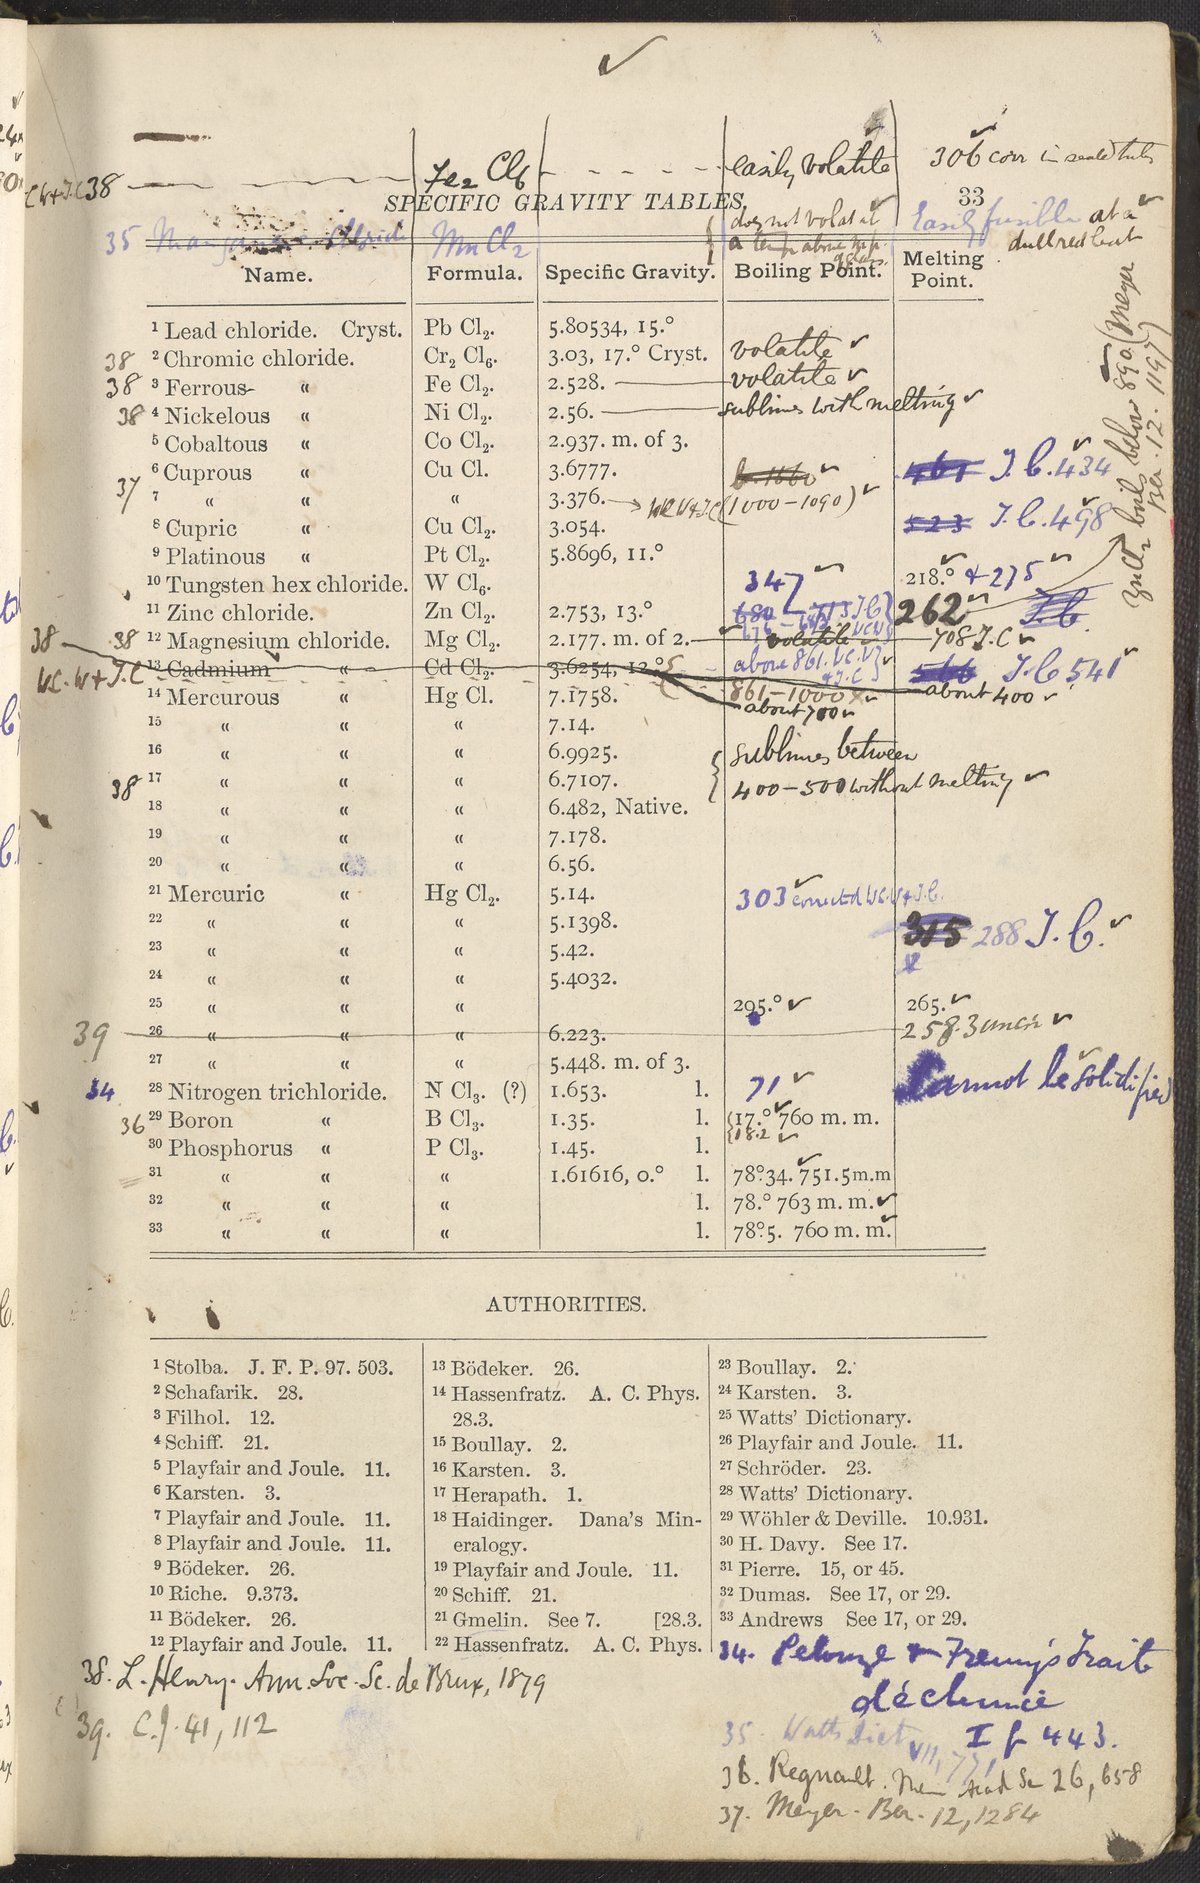 ✓
38 Fe₂ Cl₆ easily volatile 306 corr in sealed tube
SPECIFIC GRAVITY TABLES. 33
35 Manganous Chloride Mn Cl₂ does not volat at a temp above m.p. of glass Easily fusible at a dull red heat
Name. Formula. Specific Gravity. Boiling Point. Melting Point.
¹ Lead chloride. Cryst. Pb Cl₂. 5.80534, 15.°
38 ² Chromic chloride. Cr₂ Cl₆. 3.03, 17.° Cryst. volatile ✓
38 ³ Ferrous « Fe Cl₂. 2.528. volatile ✓
38 ⁴ Nickelous « Ni Cl₂. 2.56. sublimes with melting ✓
⁵ Cobaltous « Co Cl₂. 2.937. m. of 3.
⁶ Cuprous « Cu Cl. 3.6777. ✓ 461 J.C. 434 ✓
37 ⁷ « « « 3.376. → W.C.W & J.C (1000–1090) ✓
⁸ Cupric « Cu Cl₂. 3.054. 523 J.C. 498 ✓
⁹ Platinous « Pt Cl₂. 5.8696, 11.°
¹⁰ Tungsten hex chloride. W Cl₆. 347 ✓ 218.° & 275 ✓
¹¹ Zinc chloride. Zn Cl₂. 2.753, 13.° 680 J.C 262 ✓ J.C.
38 38 ¹² Magnesium chloride. Mg Cl₂. 2.177. m. of 2. ✓ volatile 708 J.C ✓
W.C.W & J.C ¹³ Cadmium « Cd Cl₂. 3.6254, 12.° above 861. W.C.W & J.C ✓ 566 J.C 541 ✓
¹⁴ Mercurous « Hg Cl. 7.1758. 861–1000 ✓ about 400 ✓
about 700 ✓
¹⁵ « « « 7.14.
¹⁶ « « « 6.9925. sublimes between
38 ¹⁷ « « « 6.7107. 400–500 without melting ✓
¹⁸ « « « 6.482, Native.
¹⁹ « « « 7.178.
²⁰ « « « 6.56.
²¹ Mercuric « Hg Cl₂. 5.14. 303 corrected W.C.W & J.C. ✓
²² « « « 5.1398. 315 288 J.C. ✓
²³ « « « 5.42.
²⁴ « « « 5.4032.
²⁵ « « « 295.° ✓ 265. ✓
39 ²⁶ « « « 6.223. 258.3 uncor ✓
²⁷ « « « 5.448. m. of 3.
34 ²⁸ Nitrogen trichloride. N Cl₃. (?) 1.653. l. 71 ✓ Cannot be solidified
36 ²⁹ Boron « B Cl₃. 1.35. l. 17.° 760 m. m.
18.2 ✓
³⁰ Phosphorus « P Cl₃. 1.45. l.
³¹ « « « 1.61616, 0.° l. 78°.34. 751.5m.m
³² « « « l. 78.° 763 m. m. ✓
³³ « « « l. 78°.5. 760 m. m. ✓
Zn Cl₂ boils below 890 (Meyer
Ber. 12. 1197)
AUTHORITIES.
¹ Stolba. J. F. P. 97. 503.
² Schafarik. 28.
³ Filhol. 12.
⁴ Schiff. 21.
⁵ Playfair and Joule. 11.
⁶ Karsten. 3.
⁷ Playfair and Joule. 11.
⁸ Playfair and Joule. 11.
⁹ Bödeker. 26.
¹⁰ Riche. 9.373.
¹¹ Bödeker. 26.
¹² Playfair and Joule. 11.
¹³ Bödeker. 26.
¹⁴ Hassenfratz. A. C. Phys.
28.3.
¹⁵ Boullay. 2.
¹⁶ Karsten. 3.
¹⁷ Herapath. 1.
¹⁸ Haidinger. Dana's Min-
eralogy.
¹⁹ Playfair and Joule. 11.
²⁰ Schiff. 21.
²¹ Gmelin. See 7. [28.3.
²² Hassenfratz. A. C. Phys.
²³ Boullay. 2.
²⁴ Karsten. 3.
²⁵ Watts' Dictionary.
²⁶ Playfair and Joule. 11.
²⁷ Schröder. 23.
²⁸ Watts' Dictionary.
²⁹ Wöhler & Deville. 10.931.
³⁰ H. Davy. See 17.
³¹ Pierre. 15, or 45.
³² Dumas. See 17, or 29.
³³ Andrews See 17, or 29.
38. L. Henry. Ann. Soc. Sc. de Brux, 1879
39. C.J. 41, 112
34. Pelouze & Fremy's Traite
de chimie
I p 443.
35. Watts Dict VII, 771
36. Regnault. Mem Acad Sc 26, 658
37. Meyer. Ber. 12, 1284